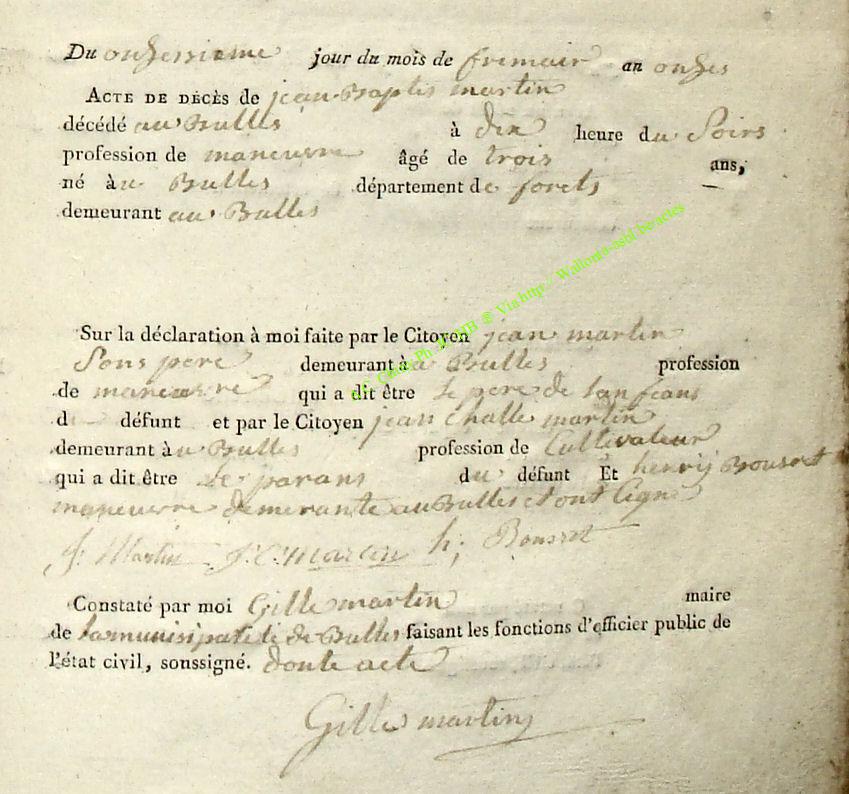 Du onzessieme jour du mois de fremair an onzes
ACTE DE DÉCÈS de jean Baptis martin
décédé au Bulles à dix heure du Soirs
profession de maneuvre âgé de trois ans,
né àu Bulles département de forets
demeurant au Bulles
Sur la déclaration à moi faite par le Citoyen jean martin
Sons pere demeurant à Bulles profession
de maneuvre qui a dit être Le pere de Lanfeans
d défunt et par le Citoyen jean Challe martin
demeurant àu Bulles profession de Cultivateur
qui a dit être Le parans du défunt Et henrij Bousret
maneuvre demerante au Bulles et ont Signe
J: Martin J: C: martin h; Bousret
Constaté par moi Gille martin maire
de Lamunisipaleté de Bulles faisant les fonctions d'officier public de
l'état civil, soussigné. donte acte
Gilles martin
Via http:// Wallonia-asbl.be/actes